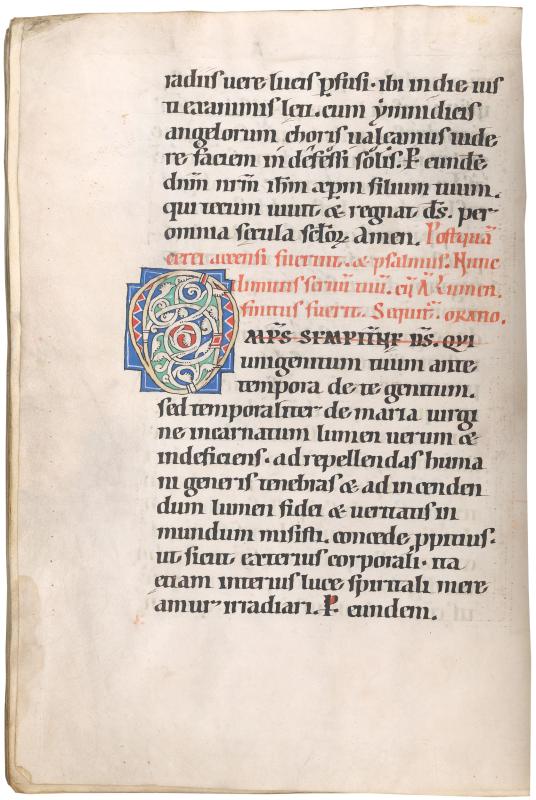 radiis uere lucis p̄fusi. ibi in die ius
ti examinis leti. cum ymnidicis
angelorum choris ualeamus uide
re faciem in defessi solis. P̄ eundē
dn̄m nr̄m ih̄m xp̄m filium tuum.
qui tecum uiuit & regnat ds̄. per
omnia secula sc̄loꝝ. Amen. Postquā
cerei accensi fuerint. & psalmus. Nunc
dimittis seruū tuū. cū A. Lumen.
finitus fuerit. Sequit᷑. oratio.
O MP̄S SEMPIT̄NE DS̄. QUI
unigenitum tuum ante
tempora de te genitum.
sed temporaliter de maria uirgi
ne incarnatum lumen uerum &
indeficiens. ad repellendas huma
ni generis tenebras & ad incenden
dum lumen fidei & ueritatis in
mundum misisti. concede ꝓpitius.
ut sicut exterius corporali. ita
etiam interius luce spiritali mere
amur irradiari. P̄. eundem.